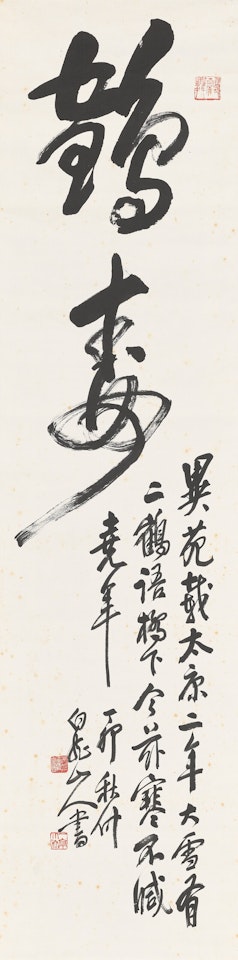 鶴
壽
異苑載太康二年大雪有
二鶴語橋下今茲寒不減
堯年
丁卯秋付
山人書